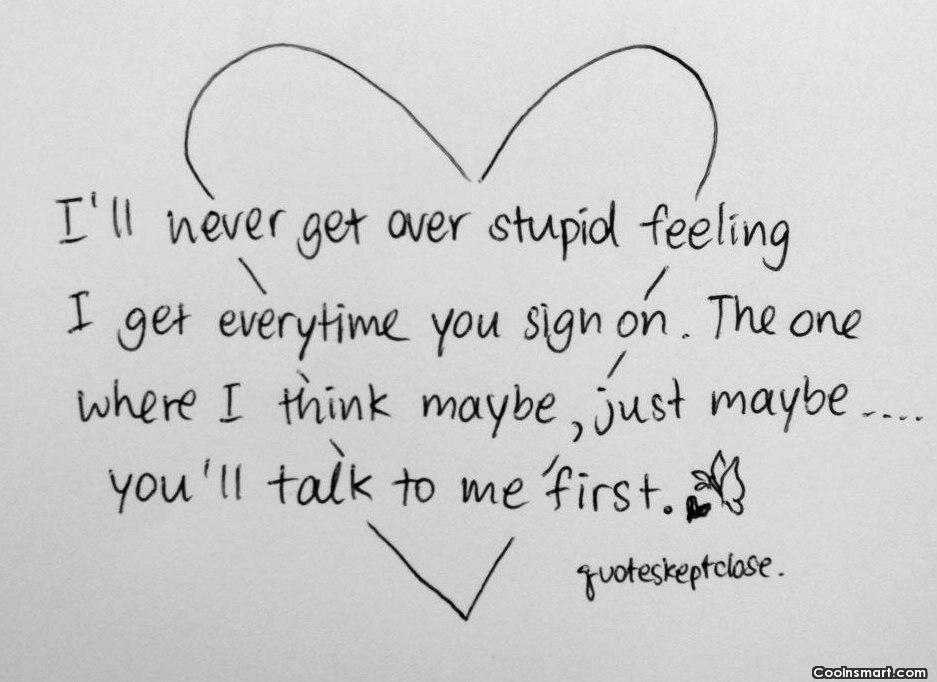 I'll never get over stupid feeling
I get everytime you sign on. The one
where I think maybe, just maybe.....
you'll talk to me first.
quoteskeptclose.
Coolnsmart.com